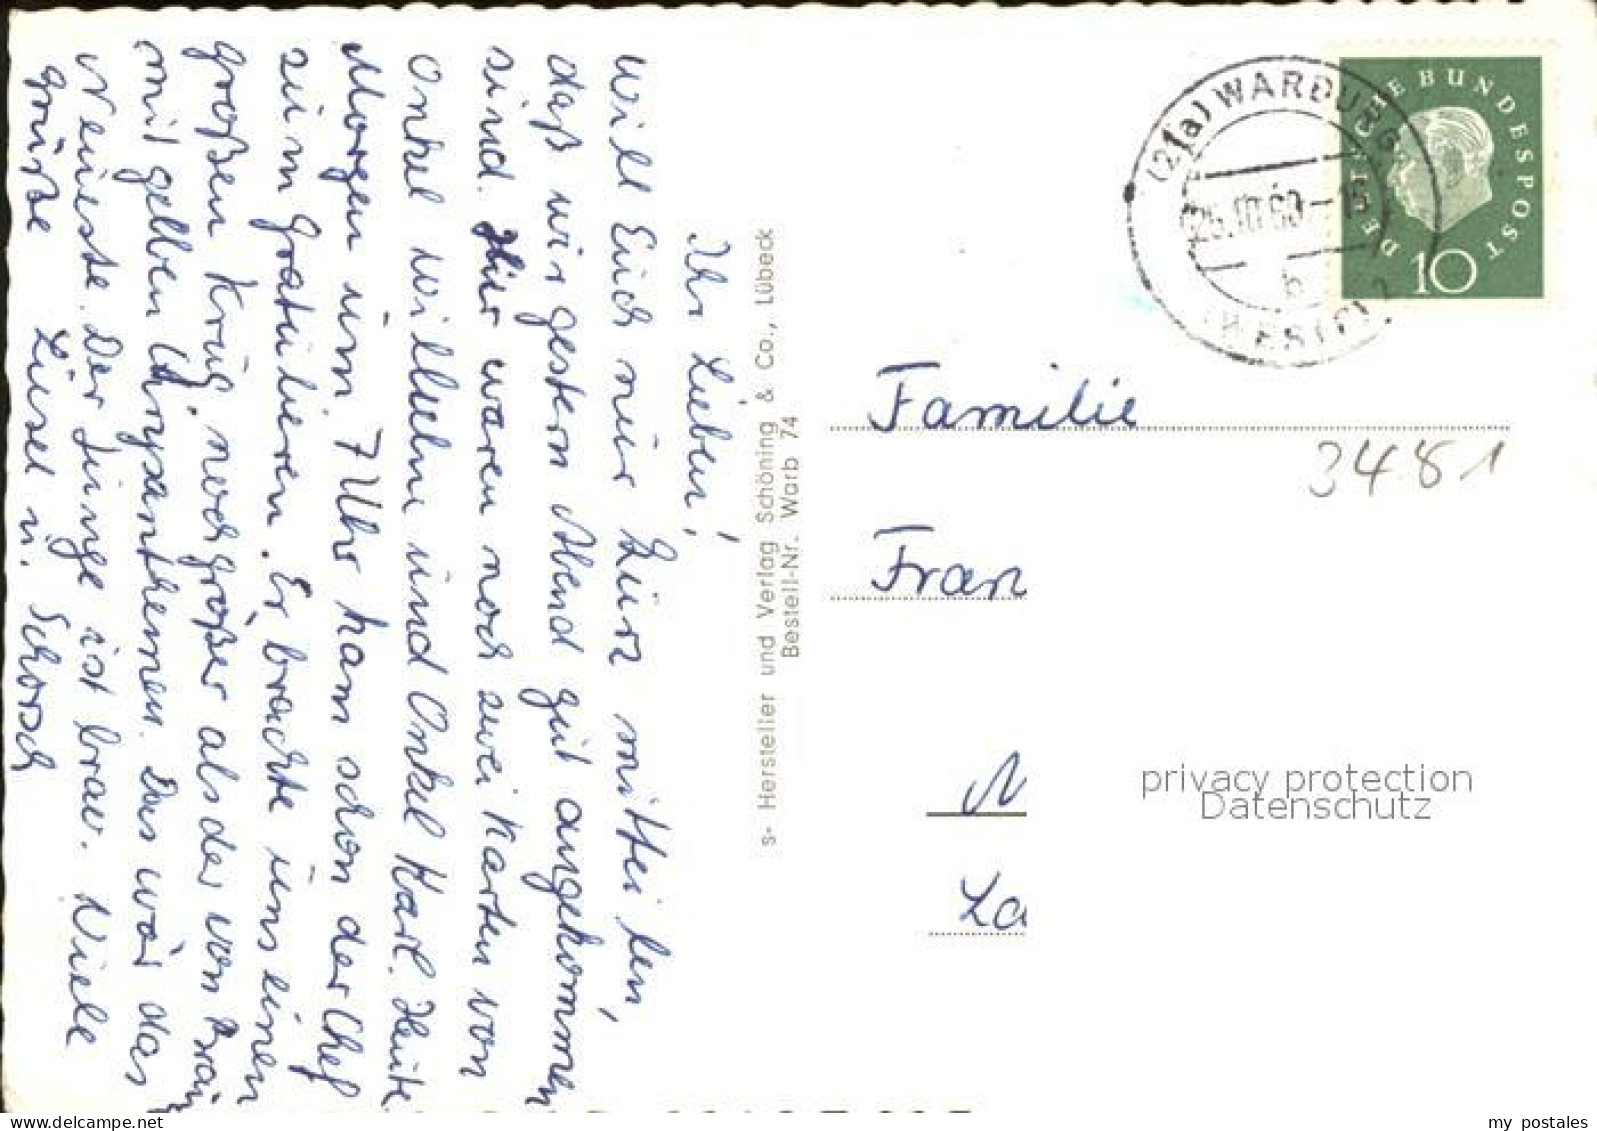 Ihr Lieben!
Will Euch nur kurz mitteilen,
daß wir gestern Abend gut angekommen
sind. Hier waren noch zwei Karten von
Onkel Willuhn und Onkel Karl. Heute
Morgen um 7 Uhr kam schon der Chef
zum Gratulieren. Er brachte uns einen
großen Krug, noch größer als der von
mit gelben Chrysanthemen. Das war das
Neueste. Der Junge ist brav. Viele
Grüße Liesel u. Schorsch
s- Hersteller und Verlag Schöning & Co., Lübeck
Bestell-Nr. Warb 74
(21a) WARBURG
25.10.60-16
b
(WESTF) 2
DEUTSCHE BUNDESPOST
10
Familie
3481
Fran
N
La
privacy protection
Datenschutz
my_postales